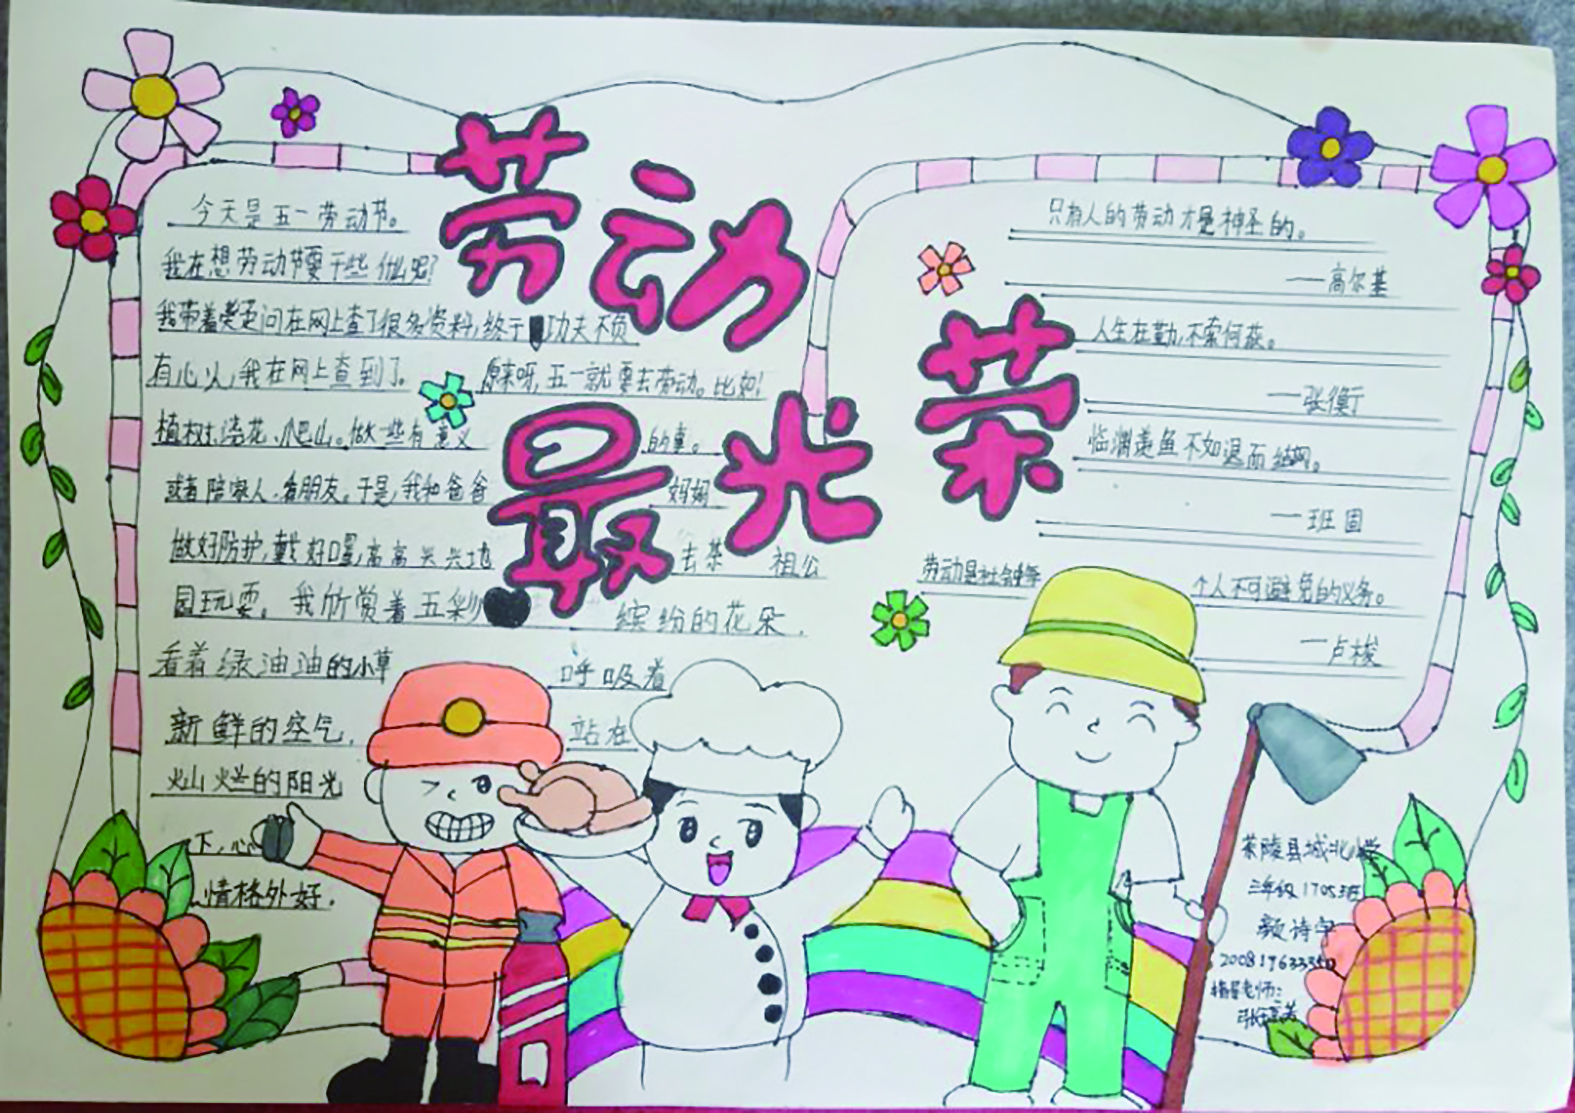 劳动
最光荣
今天是五一劳动节。
我在想劳动节要干些什么呢?
我带着疑问在网上查了很多资料,终于功夫不负
有心人,我在网上查到了。 原来呀,五一就要去劳动。比如:
植树、浇花、爬山。做一些有意义的事。
或者陪家人、看朋友。于是,我和爸爸妈妈
做好防护,戴好口罩,高高兴兴地去茶祖公
园玩耍。我欣赏着五彩缤纷的花朵,
看着绿油油的小草 呼吸着
新鲜的空气, 站在
灿烂的阳光
下,心
情格外好。
只有人的劳动才是神圣的。
——高尔基
人生在勤,不索何获。
——张衡
临渊羡鱼不如退而结网。
——班固
劳动是社会中每个人不可避免的义务。
——卢梭
茶陵县城北小学
三年级1705班
颜诗宇
指导老师: